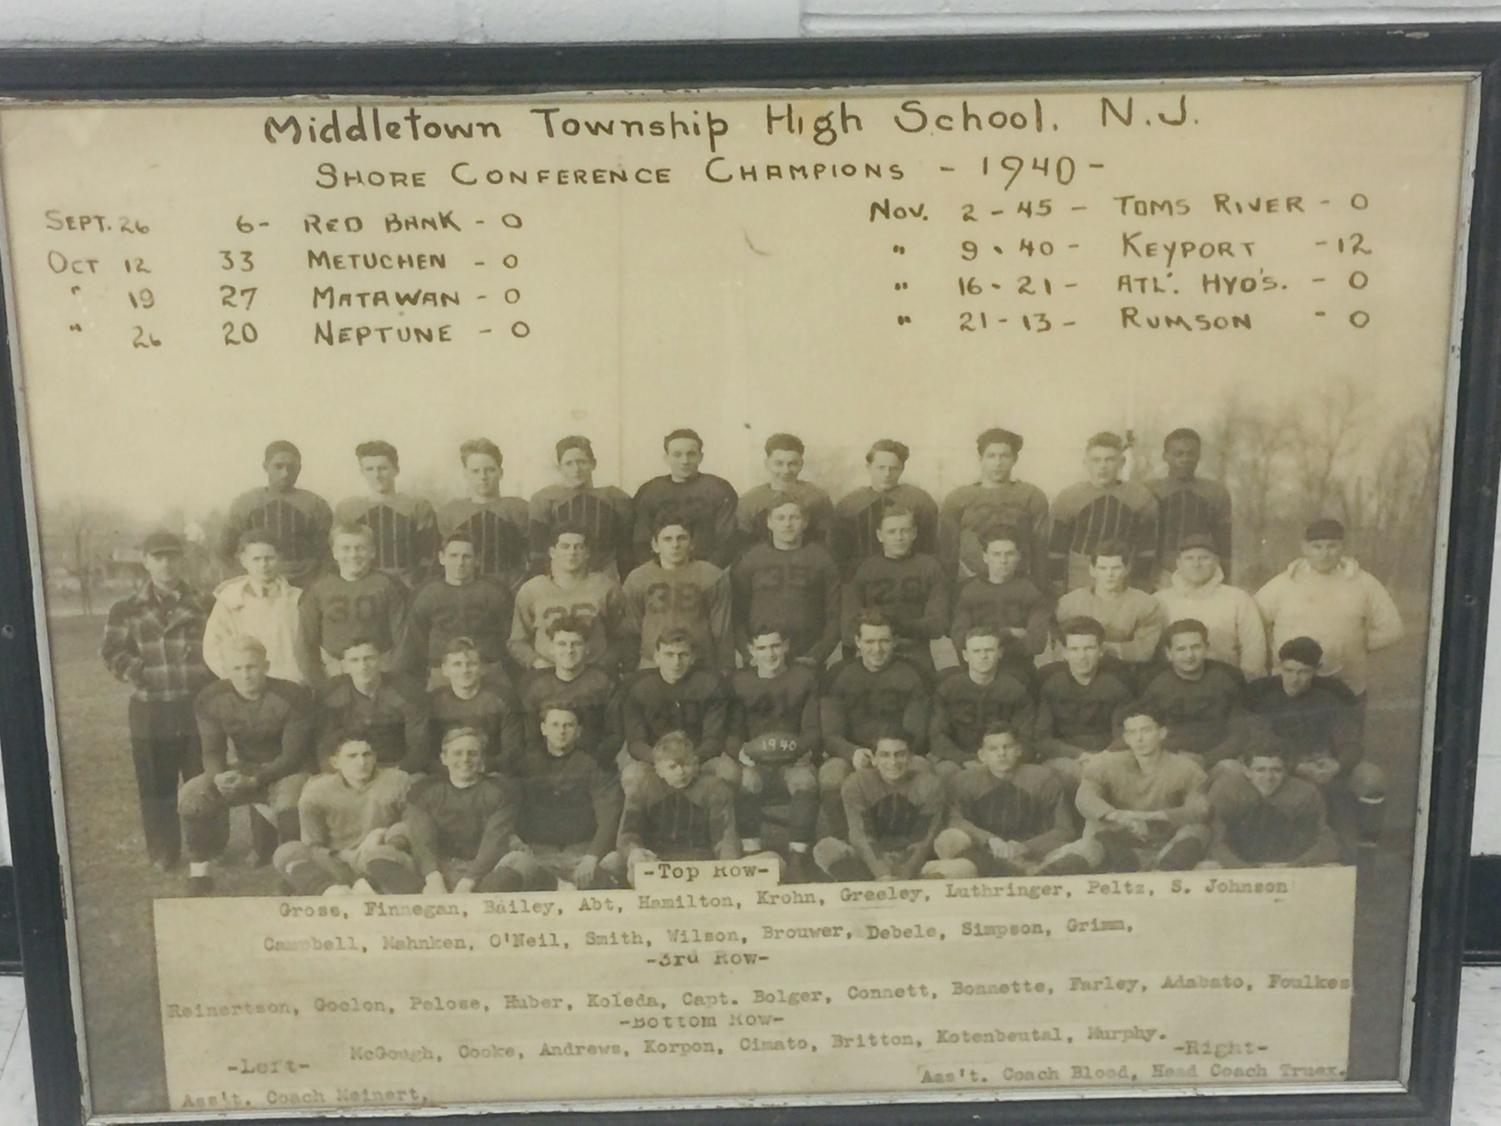 Middletown Township High School. N.J.
SHORE CONFERENCE CHAMPIONS - 1940 -
SEPT. 26 6- RED BANK - 0
OCT 12 33 METUCHEN - 0
" 19 27 MATAWAN - 0
" 26 20 NEPTUNE - 0
NOV. 2 - 45 - TOMS RIVER - 0
" 9 - 40 - KEYPORT - 12
" 16 - 21 - ATL. HYD'S. - 0
" 21 - 13 - RUMSON - 0
30
36
38
35
28
40
41
43
39
37
42
1940
-Top Row-
Gross, Finnegan, Bailey, Abt, Hamilton, Krohn, Greeley, Luthringer, Peltz, S. Johnson
Campbell, Mahnken, O'Neil, Smith, Wilson, Brouwer, Debele, Simpson, Grimm,
-3rd Row-
Reinertson, Goelon, Pelose, Huber, Koleda, Capt. Bolger, Connett, Bonnette, Farley, Adabato, Foulkes
-Bottom Row-
McGough, Cooke, Andrews, Korpon, Cimato, Britton, Kotenbeutal, Murphy.
-Left-
Ass't. Coach Meinert,
-Right-
Ass't. Coach Blood, Head Coach Truex.